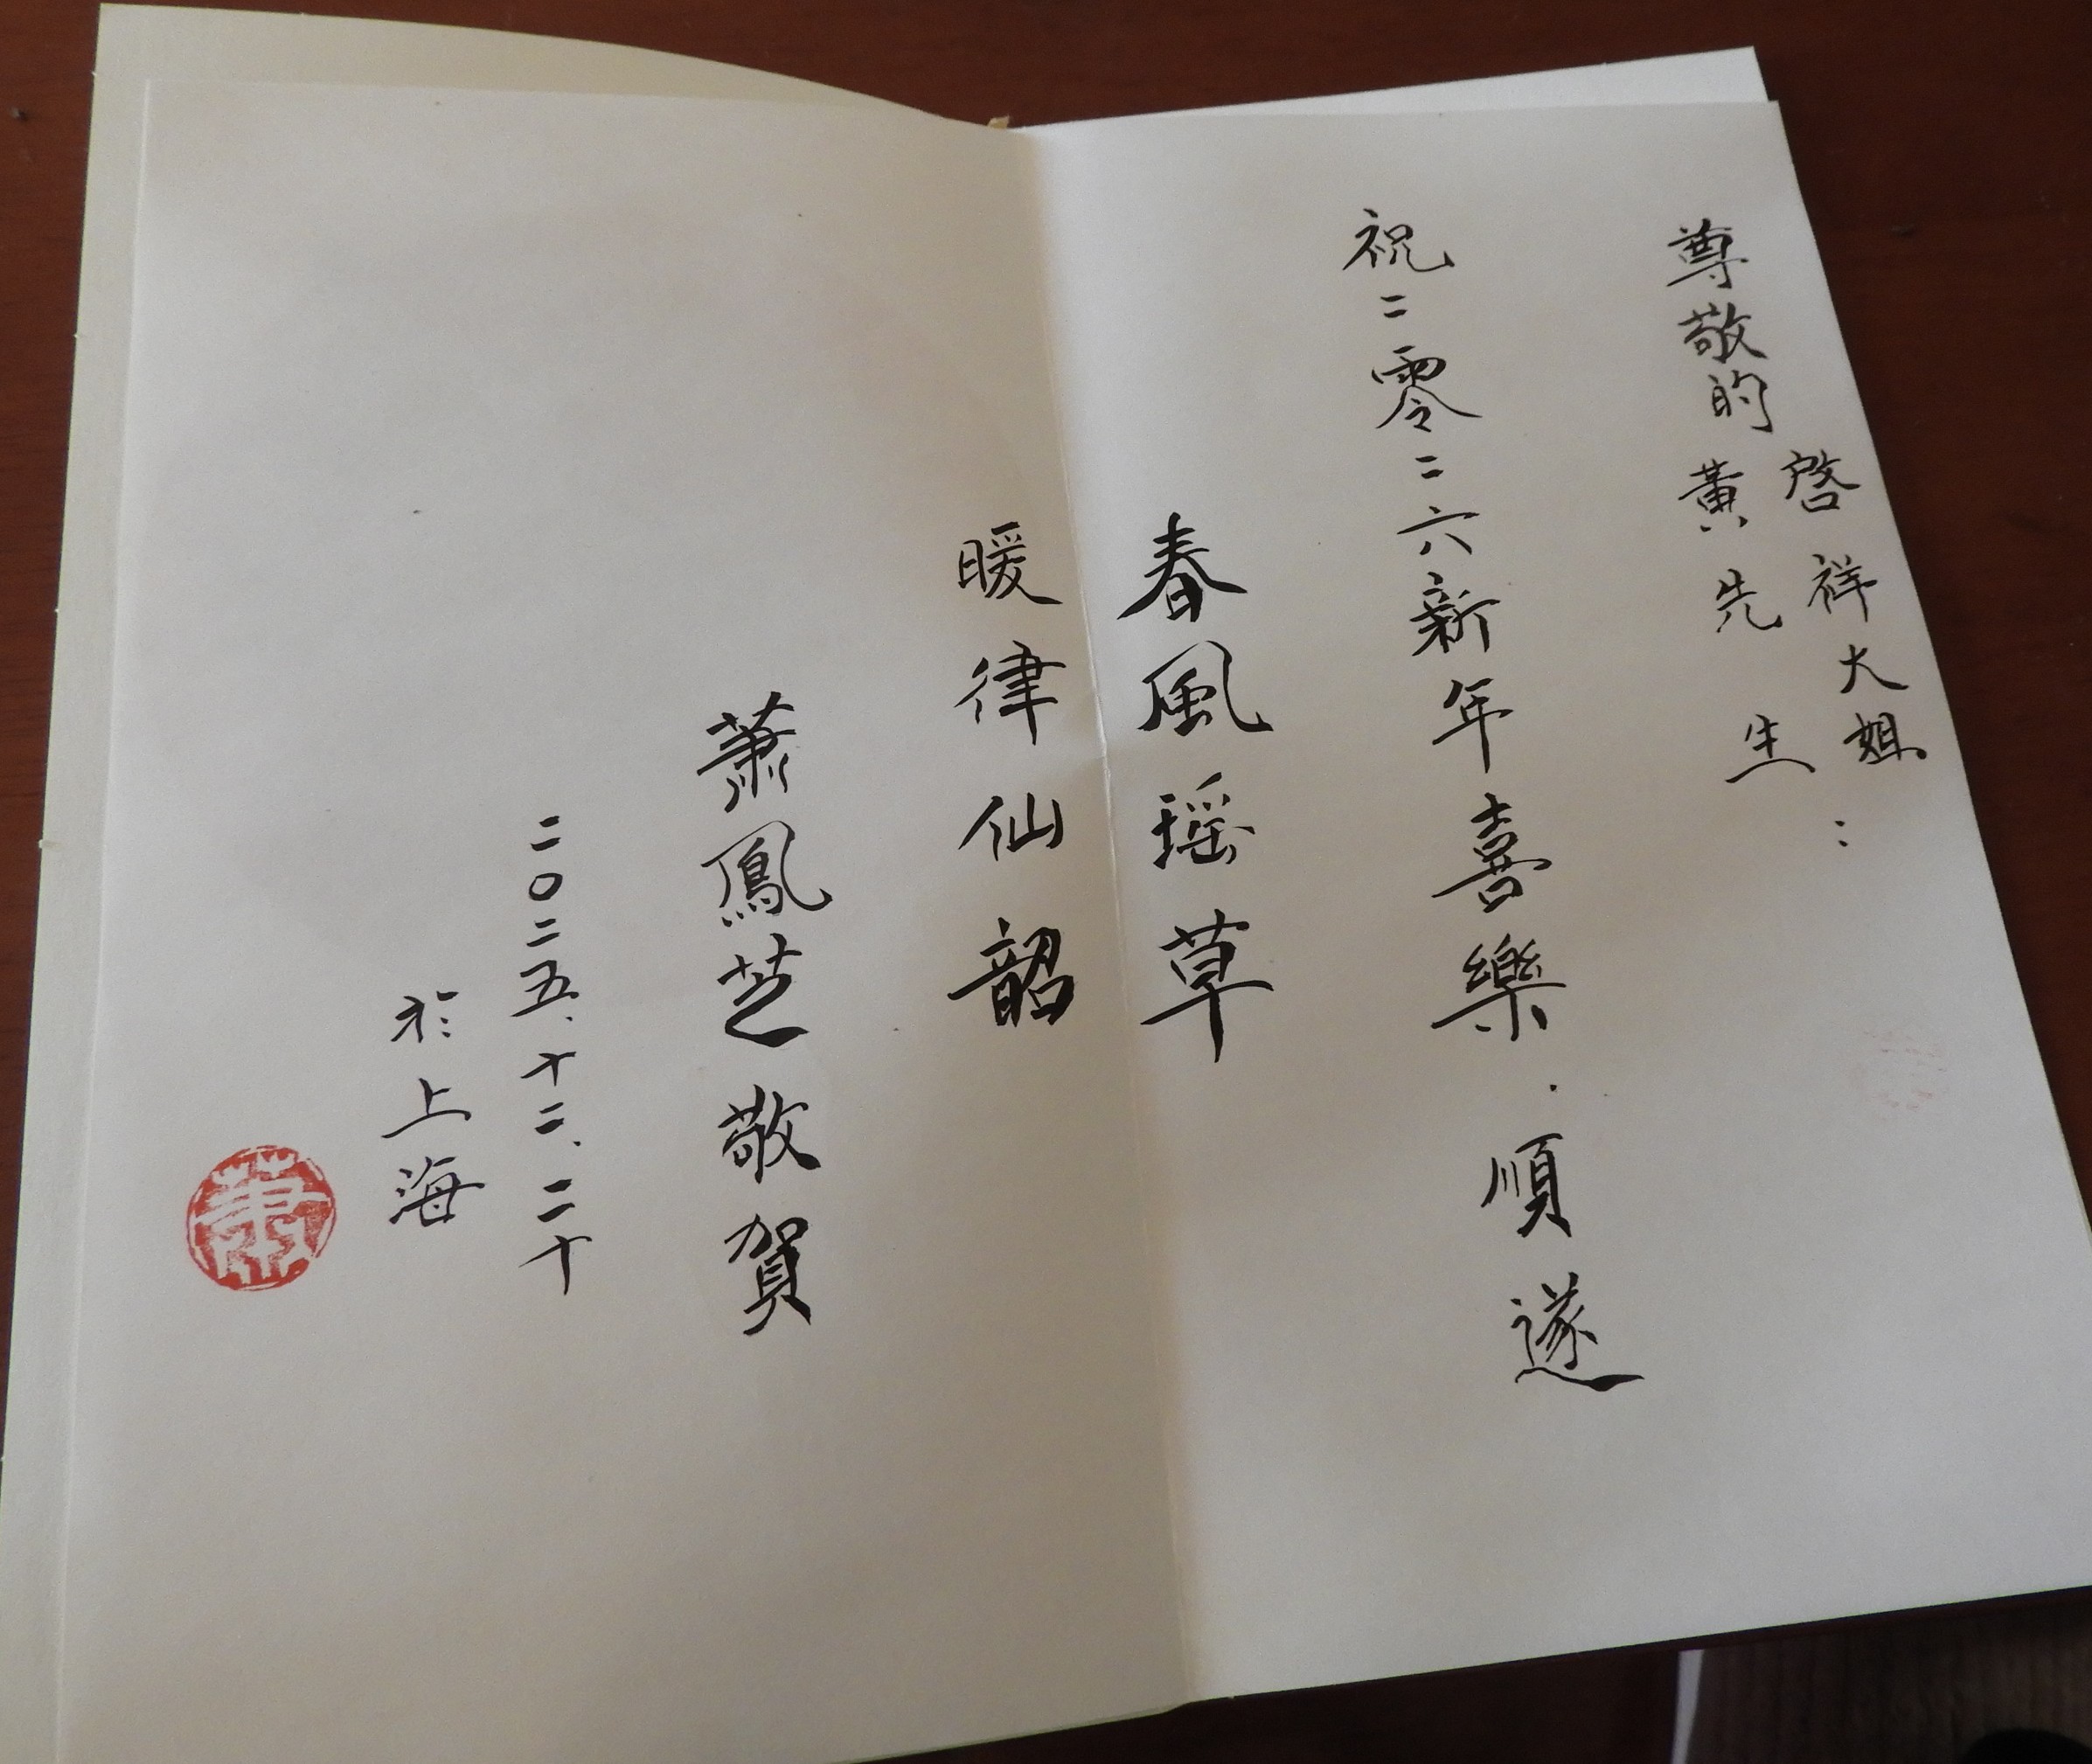 尊敬的
啓祥大姐
黃先生：
祝二零二六新年喜樂·順遂
春風瑶草
暖律仙韶
蕭鳳芝敬賀
二〇二五.十二.二十
於上海
蕭